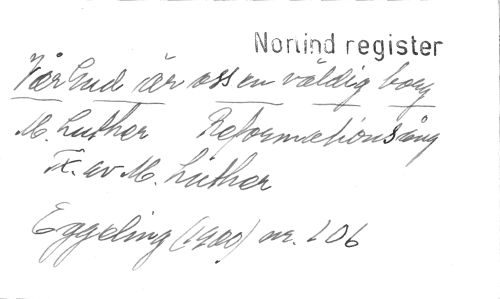 Norlind register
Vår Gud är oss en väldig borg
M. Luther Reformationssång
Tx. av M. Luther
Eggeling (1900) nr. 106